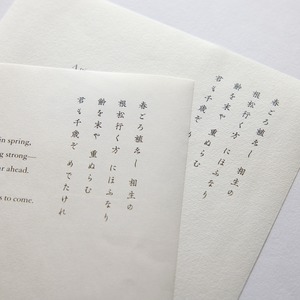 春ごろ植ゑし 相生の
根松行く方 にほふなり
齢を末や 重ぬらむ
君も千歳ぞ めでたけれ
in spring,
g strong—
r ahead.
s to come.
春ごろ植ゑし 相生の
根松行く方 にほふなり
齢を末や 重ぬらむ
君も千歳ぞ